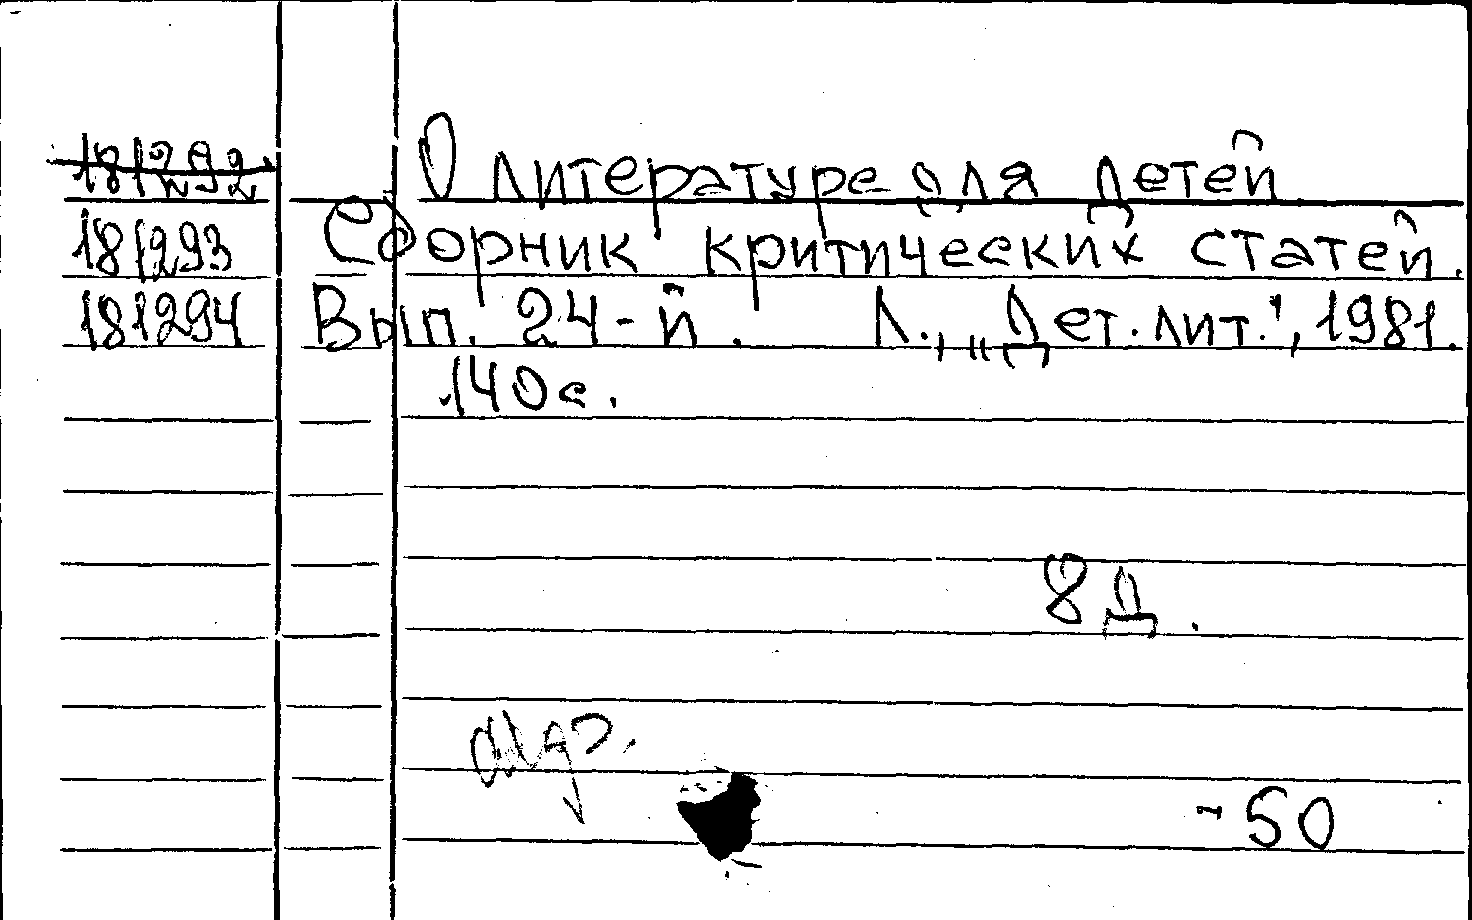 181292 О литературе для детей
181293 Сборник критических статей.
181294 Вып. 24-й. Л., „Дет. лит.", 1981.
140с.
8 Д.
-50